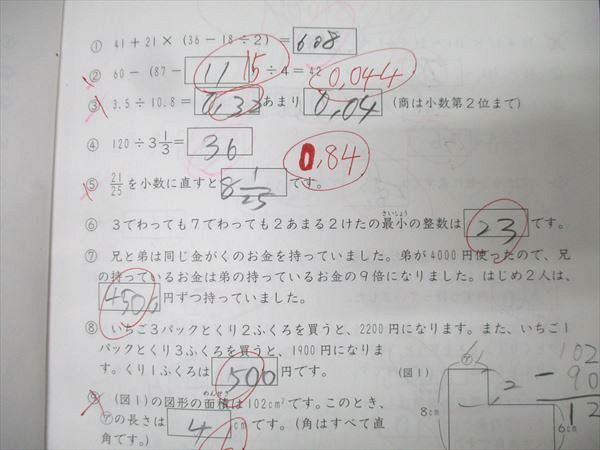 ① 41+21×(36-18÷2)=608
② 60-(87-11 15)÷4=42 0,044
③ 3.5÷10.8=0,32 あまり 0,04 (商は小数第2位まで)
④ 120÷3 1/3=36
0,84
⑤ 21/25を小数に直すと 8 1/25 です。
さいしょう
⑥ 3でわっても7でわっても2あまる2けたの最小の整数は 23 です。
⑦ 兄と弟は同じ金がくのお金を持っていました。弟が4000円使ったので、兄
の持っているお金は弟の持っているお金の9倍になりました。はじめ2人は、
4500 円ずつ持っていました。
⑧ いちご3パックとくり2ふくろを買うと、2200円になります。また、いちご1
パックとくり3ふくろを買うと、1900円になりま
す。くり1ふくろは 500 円です。
めんせき
⑨ (図1)の図形の面積は102cm²です。このとき、
㋐の長さは 4 cmです。(角はすべて直
角です。)
(図1)
㋐
8cm
6cm
2
102
- 90
12